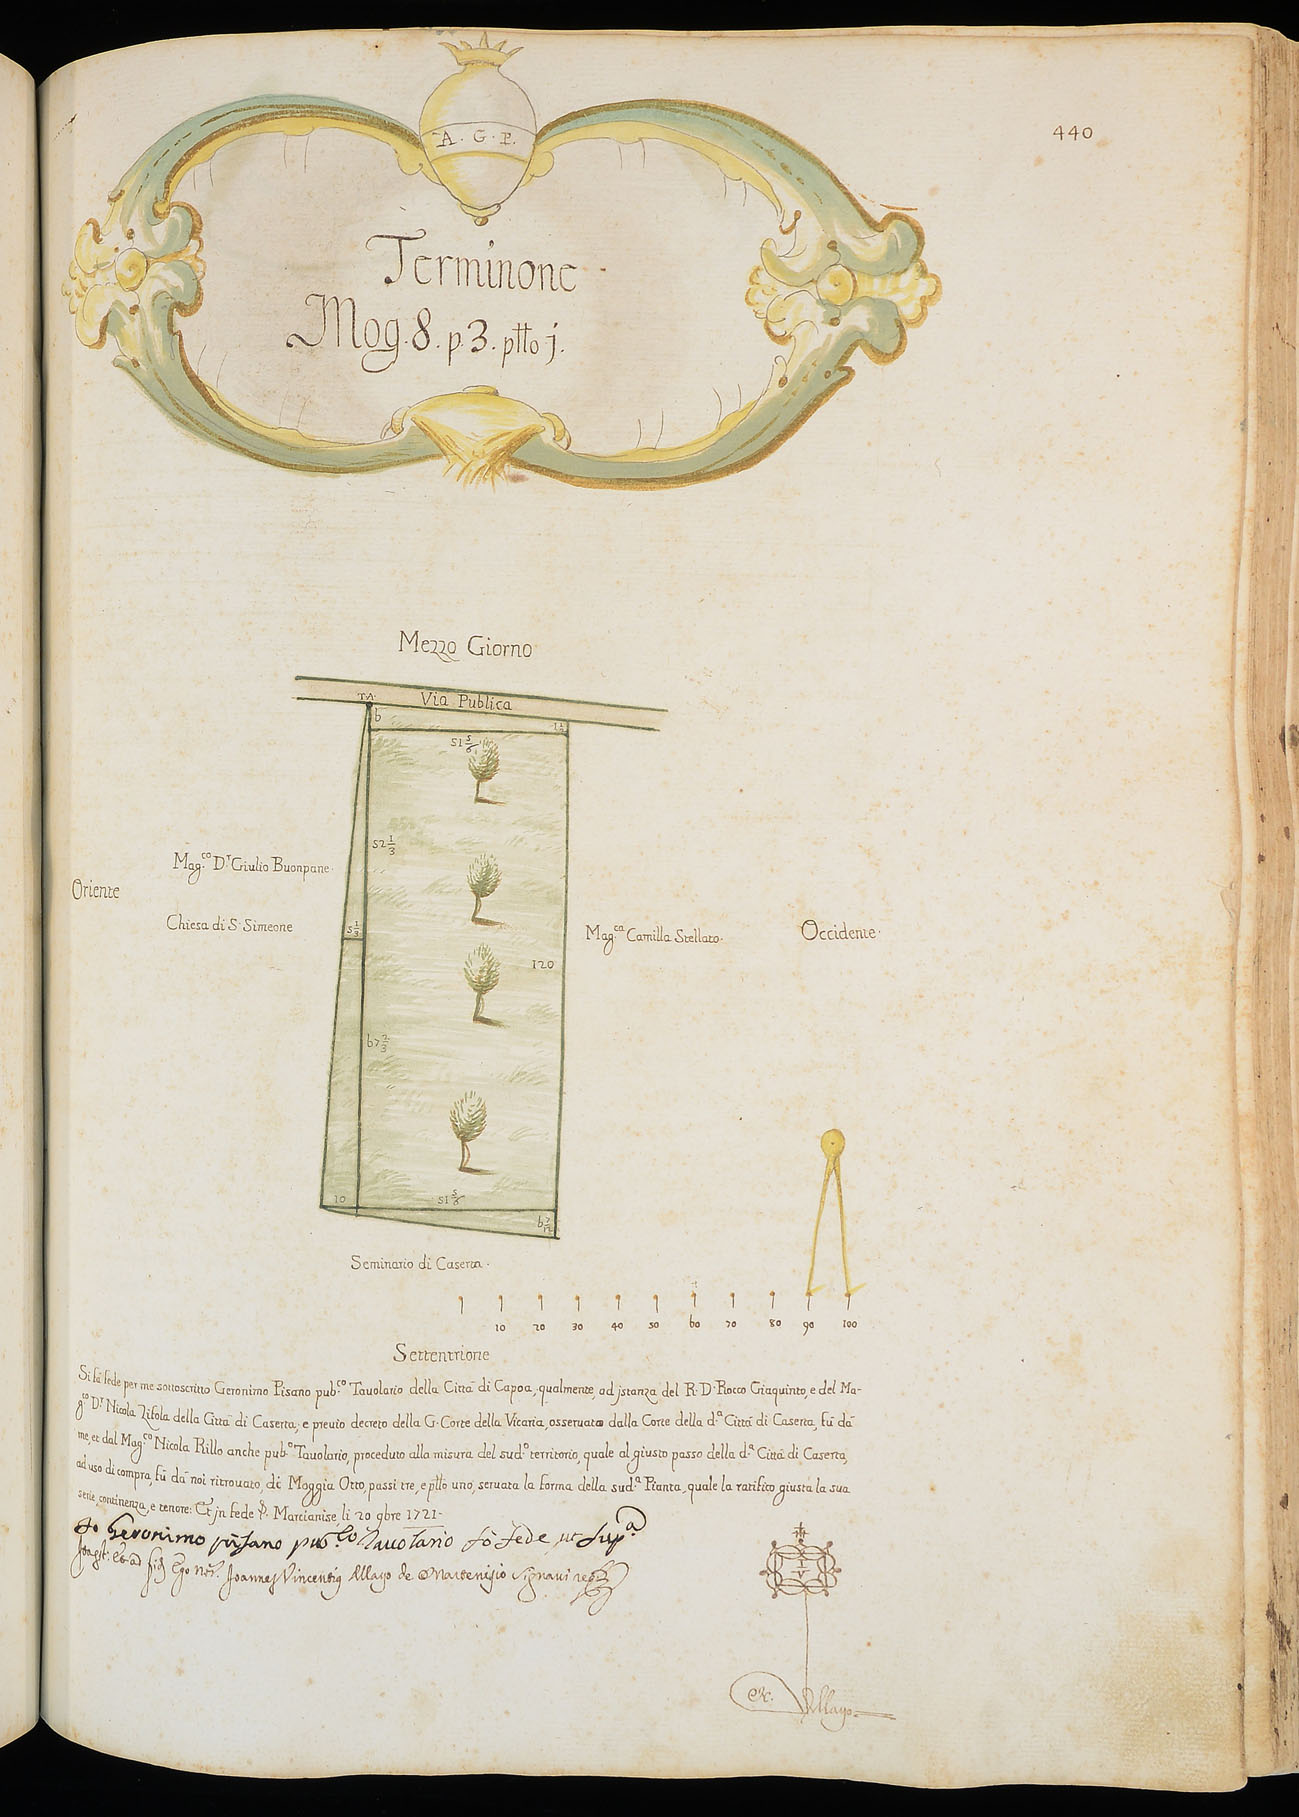 440
A. G. P.
Terminone
Mog. 8. p. 3. ptto j.
Mezzo Giorno
T.A.
Via Publica
b
1 1/4
51 5/6
52 1/3
Mag.co D.r Giulio Buonpane
Oriente
Chiesa di S. Simeone
5 1/3
Mag.ca Camilla Stellato.
Occidente.
120
b7 2/3
10
51 5/6
b 7/12
Seminario di Caserta.
10 20 30 40 50 60 70 80 90 100
Settentrione
Si fà fede per me sottoscritto Geronimo Pisano pub.co Tauolario della Città di Capoa, qualmente, ad jstanza del R. D. Rocco Giaquinto, e del Ma-
g.co D.r Nicola Zifola della Città di Caserta, e preuio decreto della G. Corte della Vicaria, osseruato dalla Corte della d.a Città di Caserta, fù dà
me, et dal Mag.co Nicola Rillo anche pub.o Tauolario, proceduto alla misura del sud.o territorio, quale al giusto passo della d.a Città di Caserta,
ad uso di compra, fù dà noi ritrouato, di Moggia Otto, passi tre, e ptto uno, seruata la forma della sud.a Pianta, quale la ratifico giusta la sua
serie, continenza, e tenore: Et jn fede &. Marcianise, li 20 9bre 1721-
Io Geronimo pisano pub.co Tauolario fò fede ut sup.a
Ego Not. Joannes Vincentius Allayo de Martenisio signaui